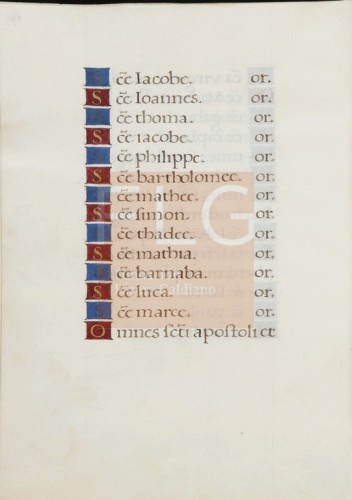 S cē Iacobe. or.
S cē Ioannes. or.
S cē thoma. or.
S cē iacobe. or.
S cē philippe. or.
S cē bartholomee. or.
S cē mathee. or.
S cē simon. or.
S cē thadee. or.
S cē mathia. or.
S cē barnaba. or.
S cē luca. or.
S cē marce. or.
O mnes scti apostoli et
FLG